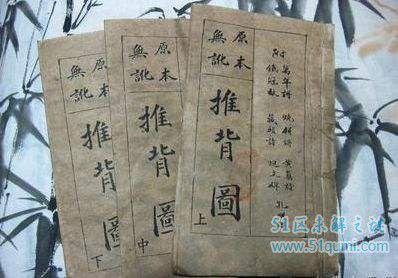 萬年詩 燒餅詩 黃蘗詩
附 鐵冠數 藏頭詩
原本
無訛
推背圖
上
原本
無訛
推背圖
中
原本
無訛
推背圖
下
51区未解之谜
www.51qumi.com